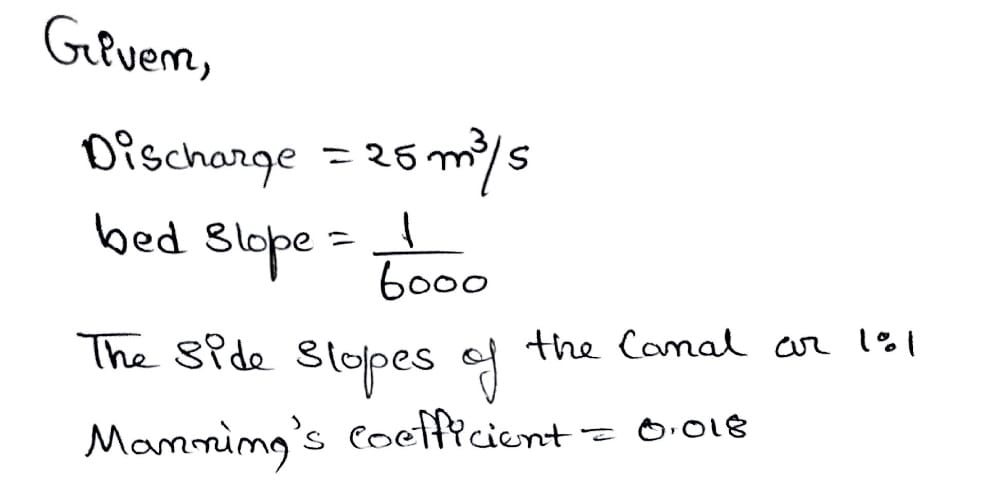 Given,
Discharge = 25 m³/s
bed slope = 1/6000
The side slopes of the Canal ar 1:1
Manning's coefficient = 0.018